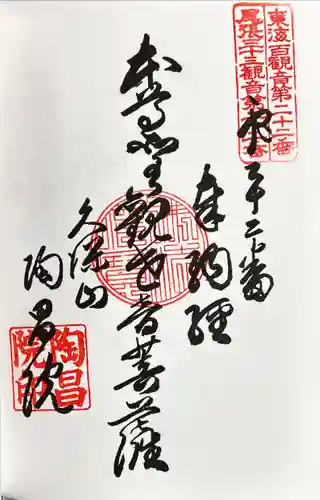 東海百觀音第二十二番
尾張三十三觀音第二十二番
第二十二番
奉納経
本尊聖観世音菩薩
久深山
陶昌院
陶昌
院印